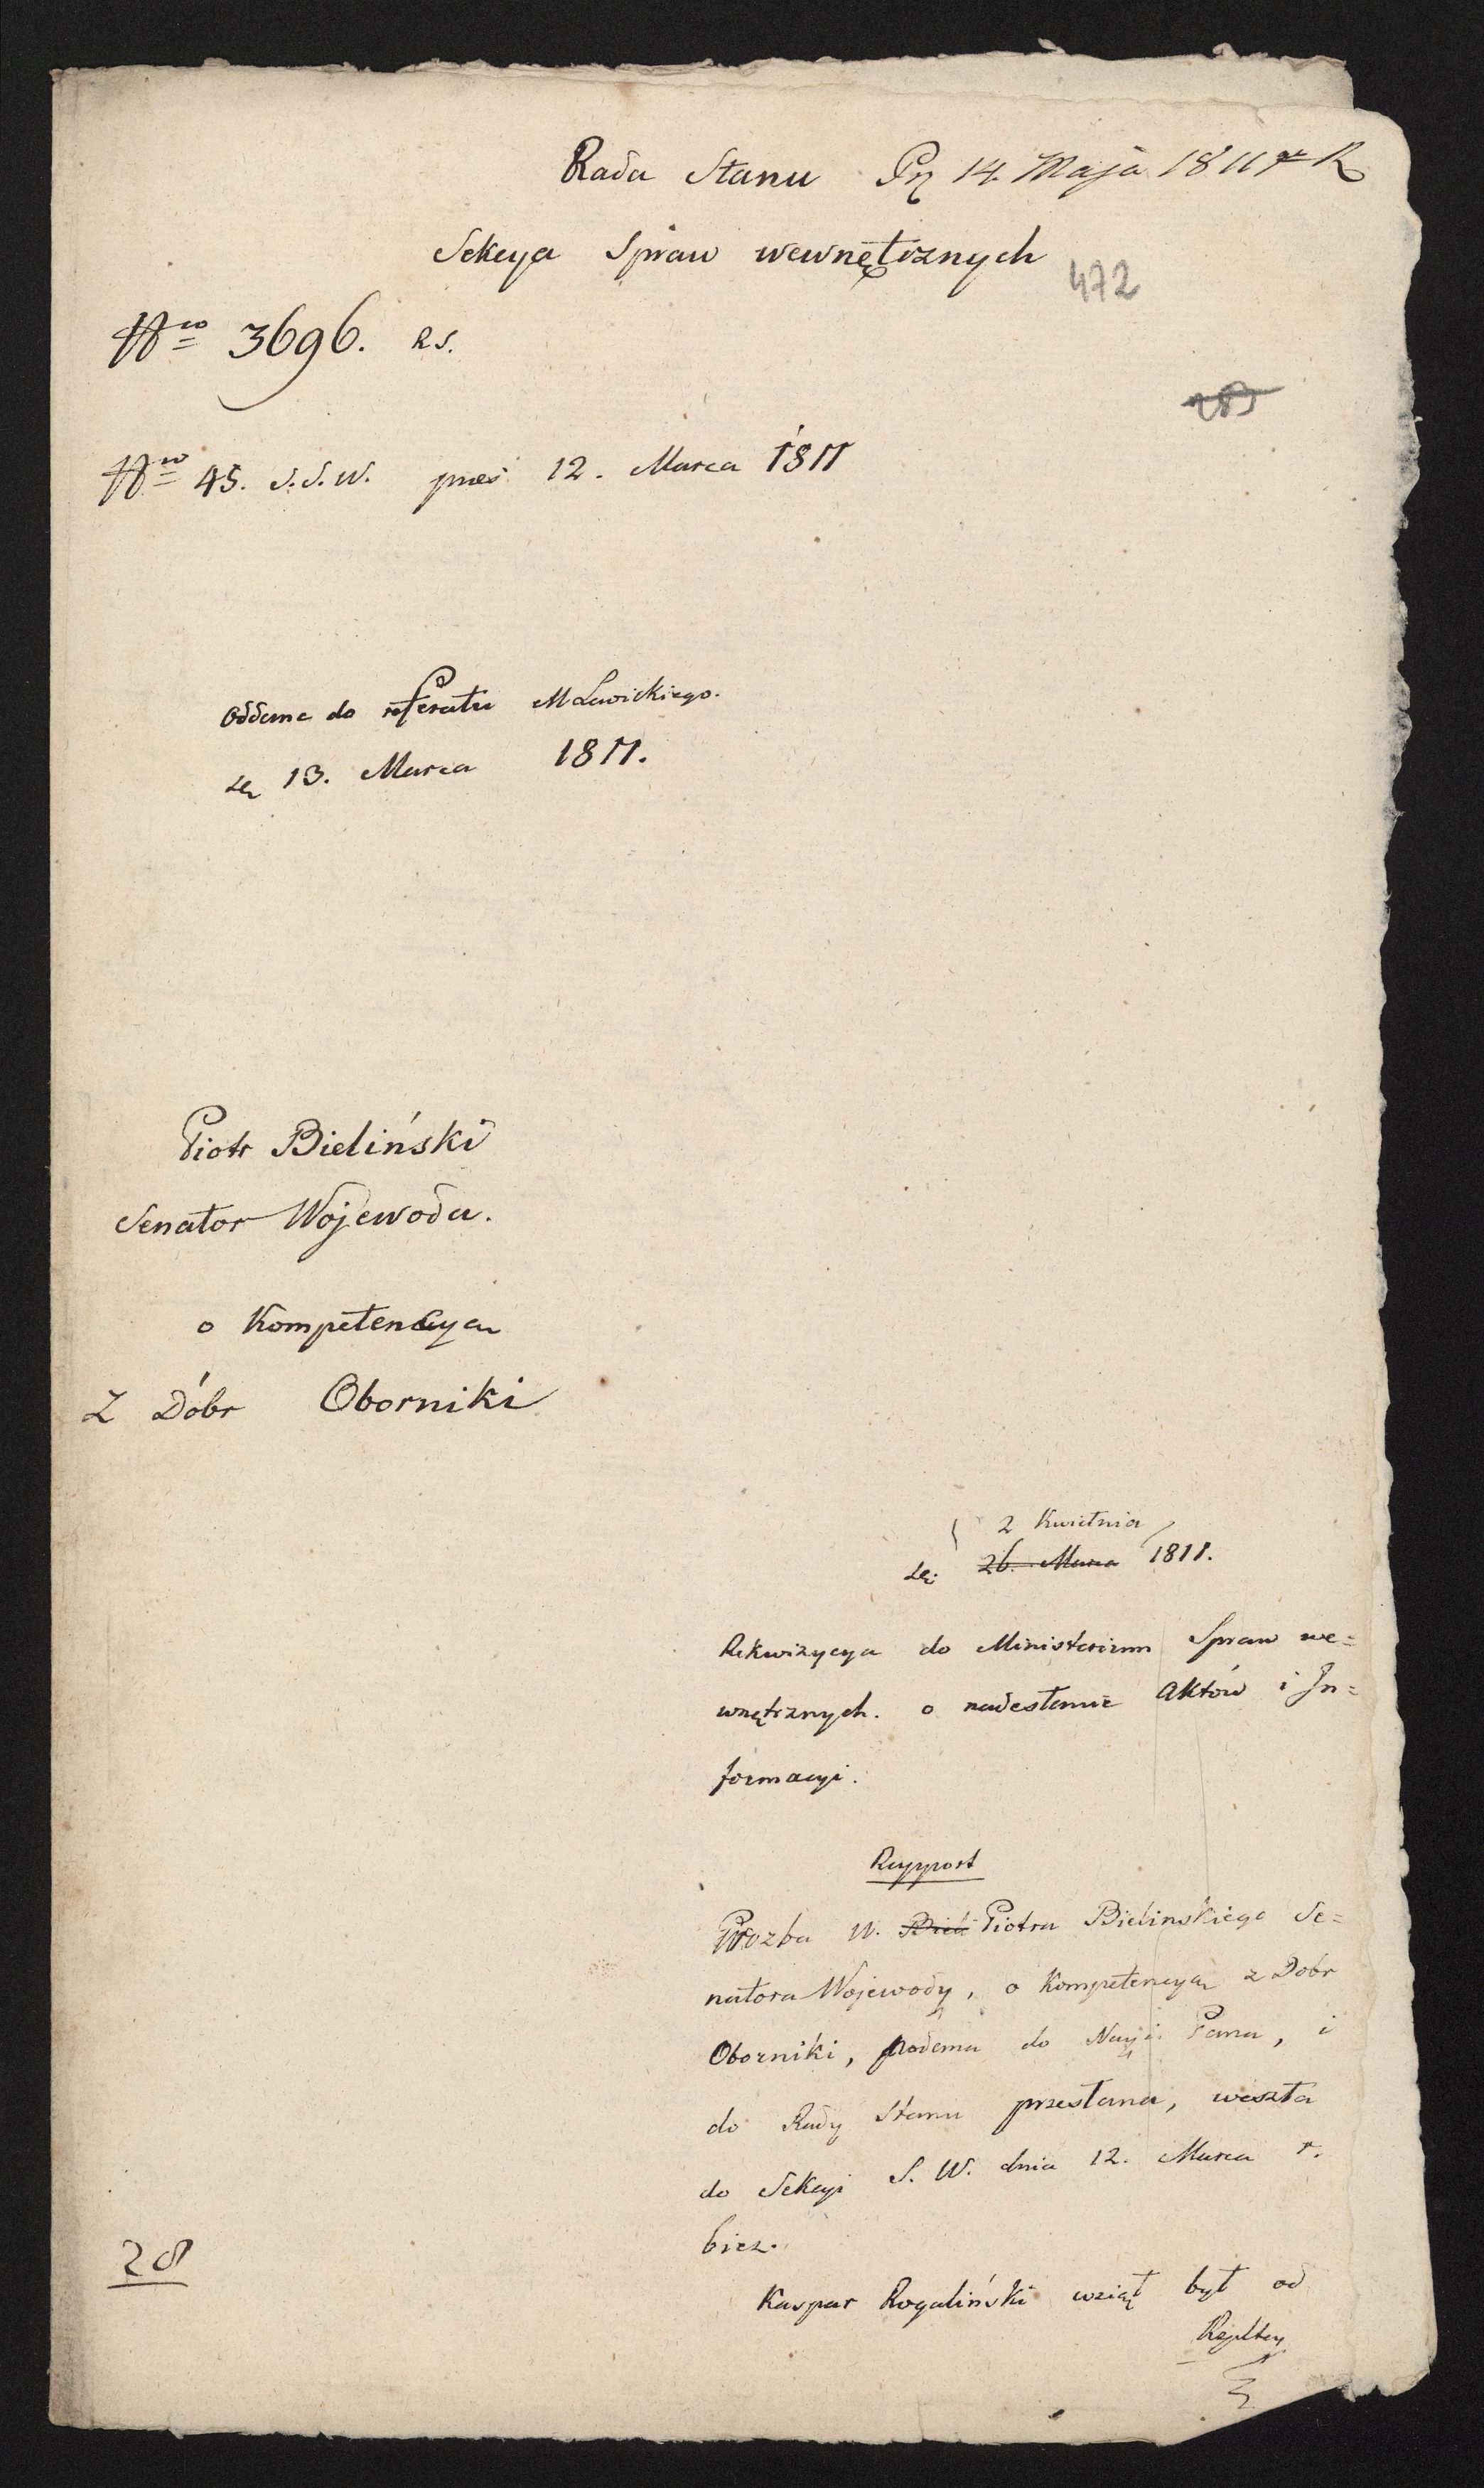 Rada Stanu Pr 14 Maja 1811 R
Sekcya Spraw wewnętrznych
472
Nro 3696. R.S.
Nro 45. S.S.W. pres 12. Marca 1811
Oddane do referatu M Lewickiego.
13. Marca 1811.
Piotr Bieliński
Senator Wojewoda.
o Kompetencyą
z Dóbr Oborniki
2 Kwietnia
26. Marca 1811.
Rekwizycya do Ministerium Spraw we=
wnętrznych. o nadesłanie Aktów i In=
formacyi.
Rapport
Prozba W. Bieli Piotra Bielinskiego Se=
natora Wojewody, o Kompetencyą z Dobr
Oborniki, podana do Nayj: Pana, i
do Rady Stanu przesłana, weszła
do Sekcyi S. W. dnia 12. Marca r.
bież.
Kaspar Rogaliński wziął był od
Rzpltey
28